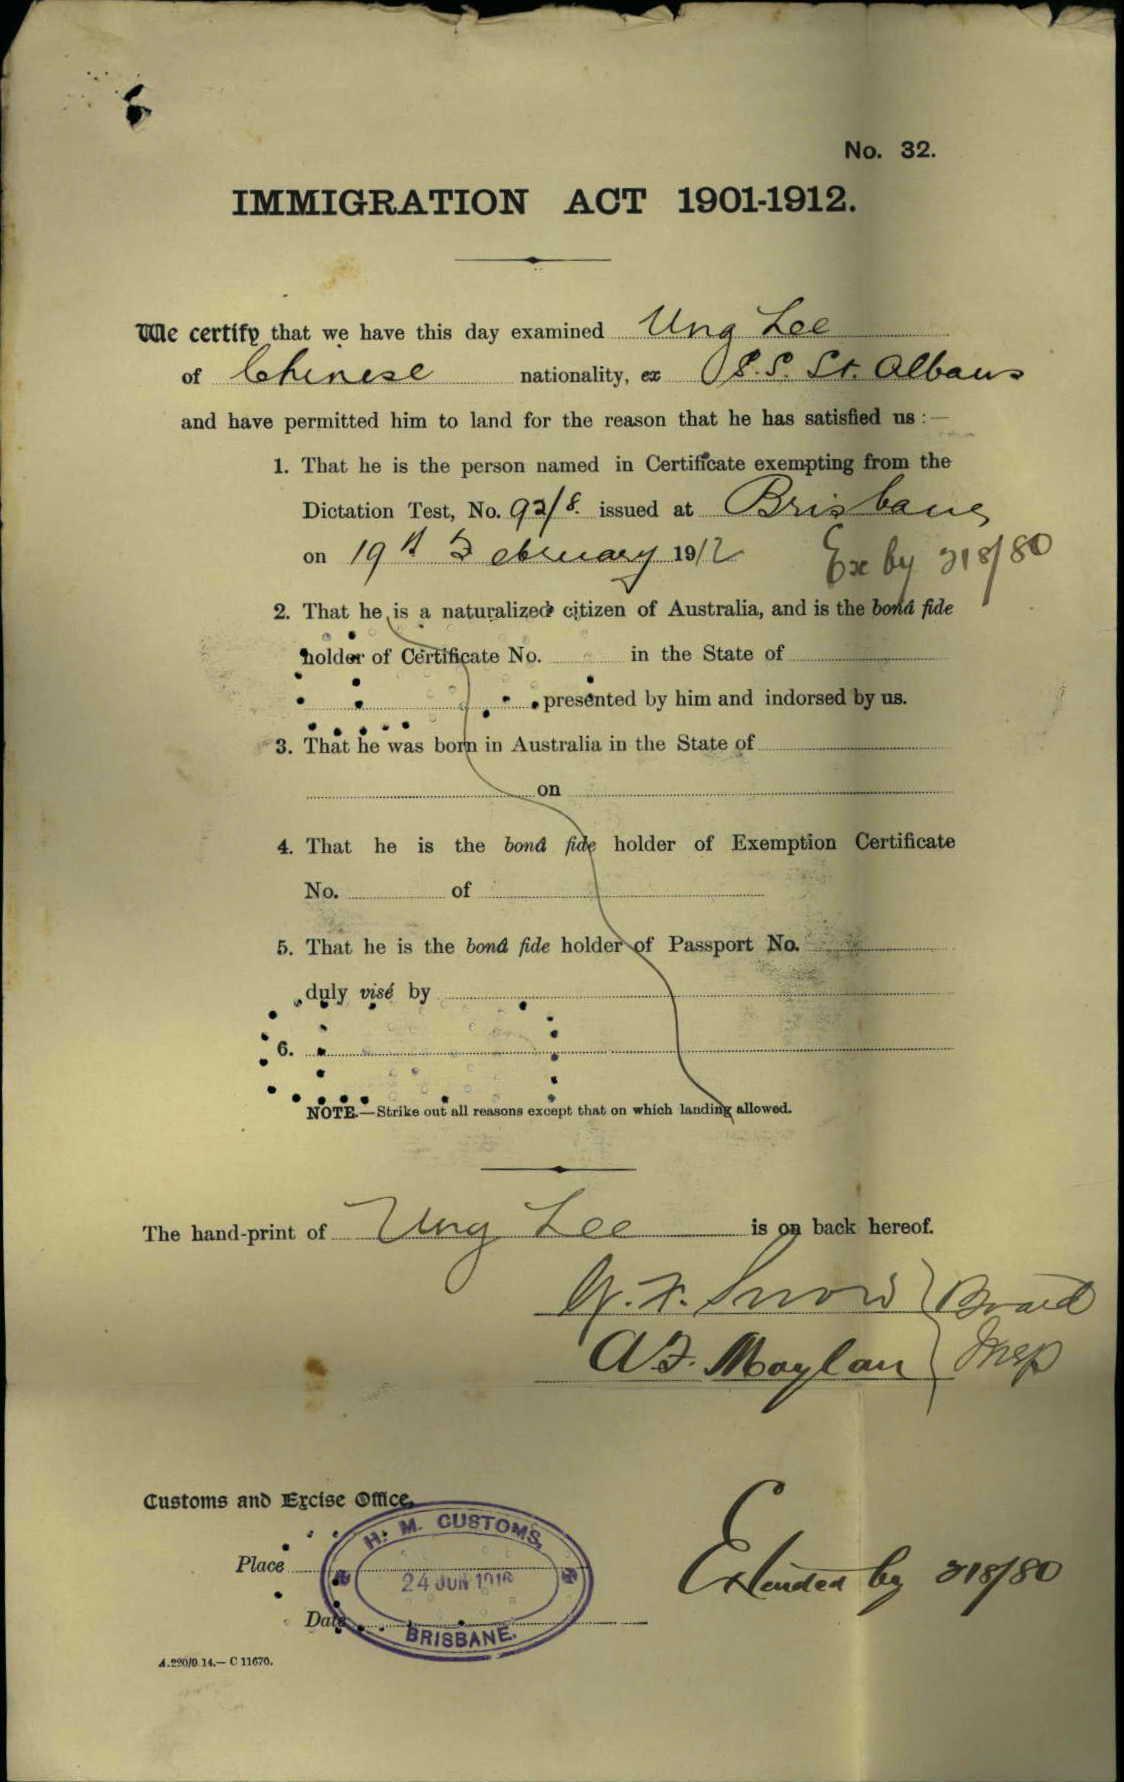 No. 32.
IMMIGRATION ACT 1901-1912.
We certify that we have this day examined Ung Lee
of Chinese nationality, ex S.S. St. Albans
and have permitted him to land for the reason that he has satisfied us :—
1. That he is the person named in Certificate exempting from the
Dictation Test, No. 92/8. issued at Brisbane
on 19th February 1912
Ex by 218/80
2. That he is a naturalized citizen of Australia, and is the bonâ fide
holder of Certificate No. in the State of
presented by him and indorsed by us.
3. That he was born in Australia in the State of
on
4. That he is the bonâ fide holder of Exemption Certificate
No. of
5. That he is the bonâ fide holder of Passport No.
duly visé by
6.
NOTE.—Strike out all reasons except that on which landing allowed.
The hand-print of Ung Lee is on back hereof.
W. F. Snow } Board
A.F. Moylan } Insp
Customs and Excise Office,
H. M. CUSTOMS,
Place
24 JUN 1916
Date
BRISBANE.
Extended by 218/80
A.220/9.14.— C 11670.